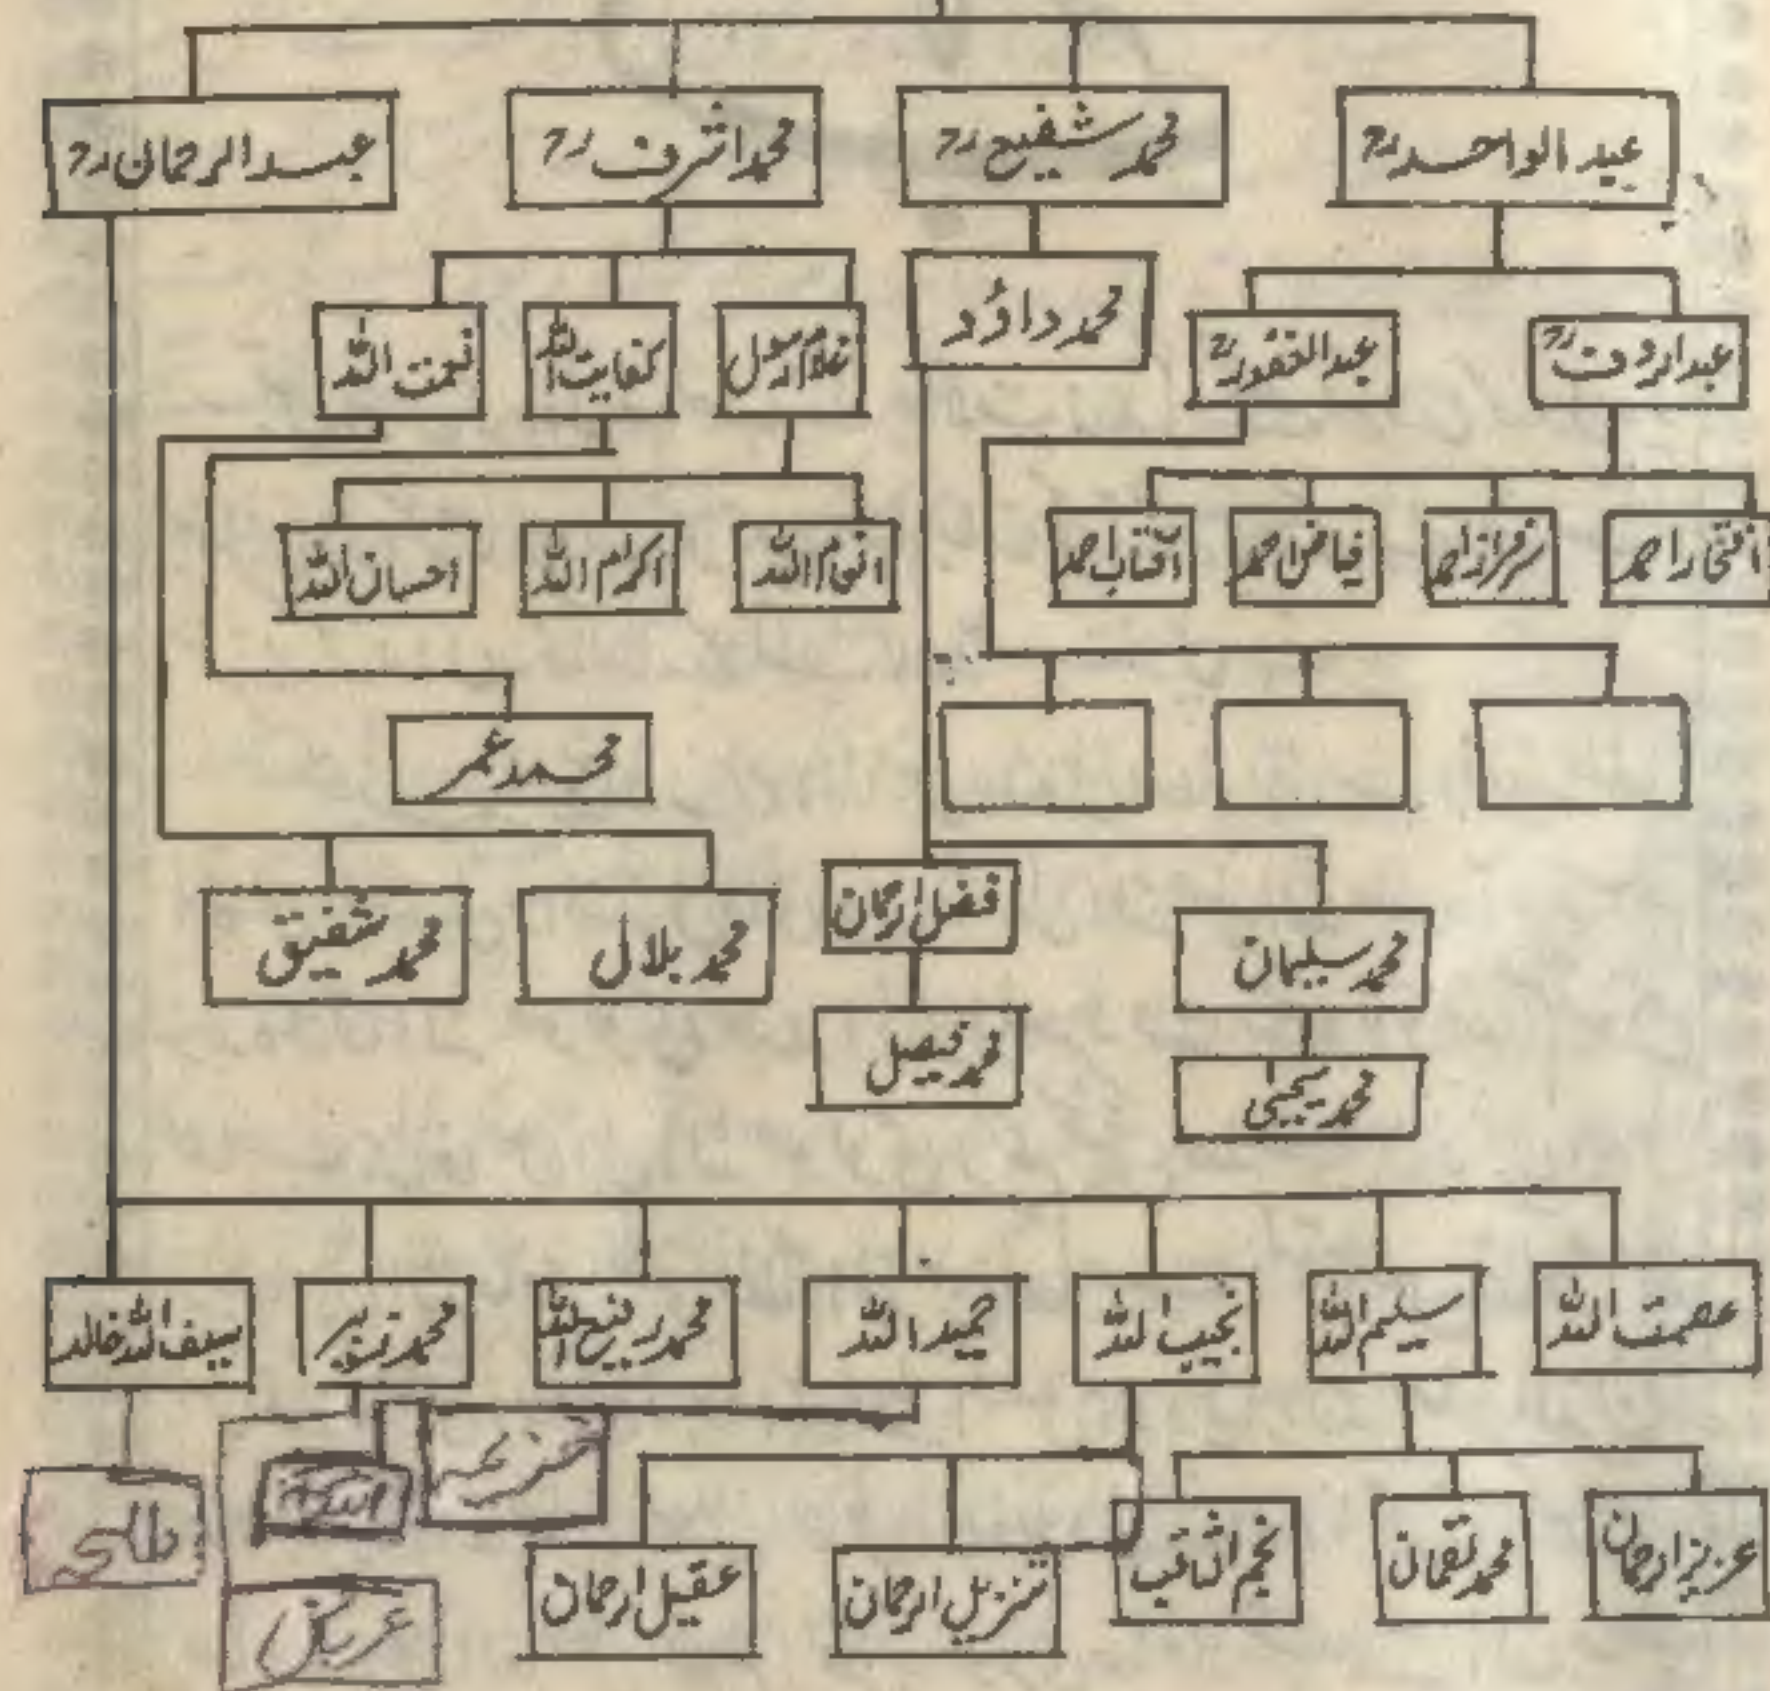 عبد الواحد رح
محمد شفیع رح
محمد اشرف رح
عبد الرحمان رح
محمد داؤد
عبد الرؤف رح
عبد الغفور رح
غلام رسول
کفایت اللہ
نعمت اللہ
افتخار احمد
سرفراز احمد
فیاض احمد
آفتاب احمد
انعام اللہ
اکرام اللہ
احسان اللہ
محمد عمر
فضل الرحمان
محمد بلال
محمد شفیق
محمد سلیمان
محمد فیصل
محمد یحییٰ
عصمت اللہ
سلیم اللہ
نجیب اللہ
حمید اللہ
محمد ربیع اللہ
محمد تنویر
سیف اللہ خالد
خزیمہ
طلحہ
عزیز الرحمان
محمد لقمان
نجم الثاقب
تنزیل الرحمان
عقیل الرحمان